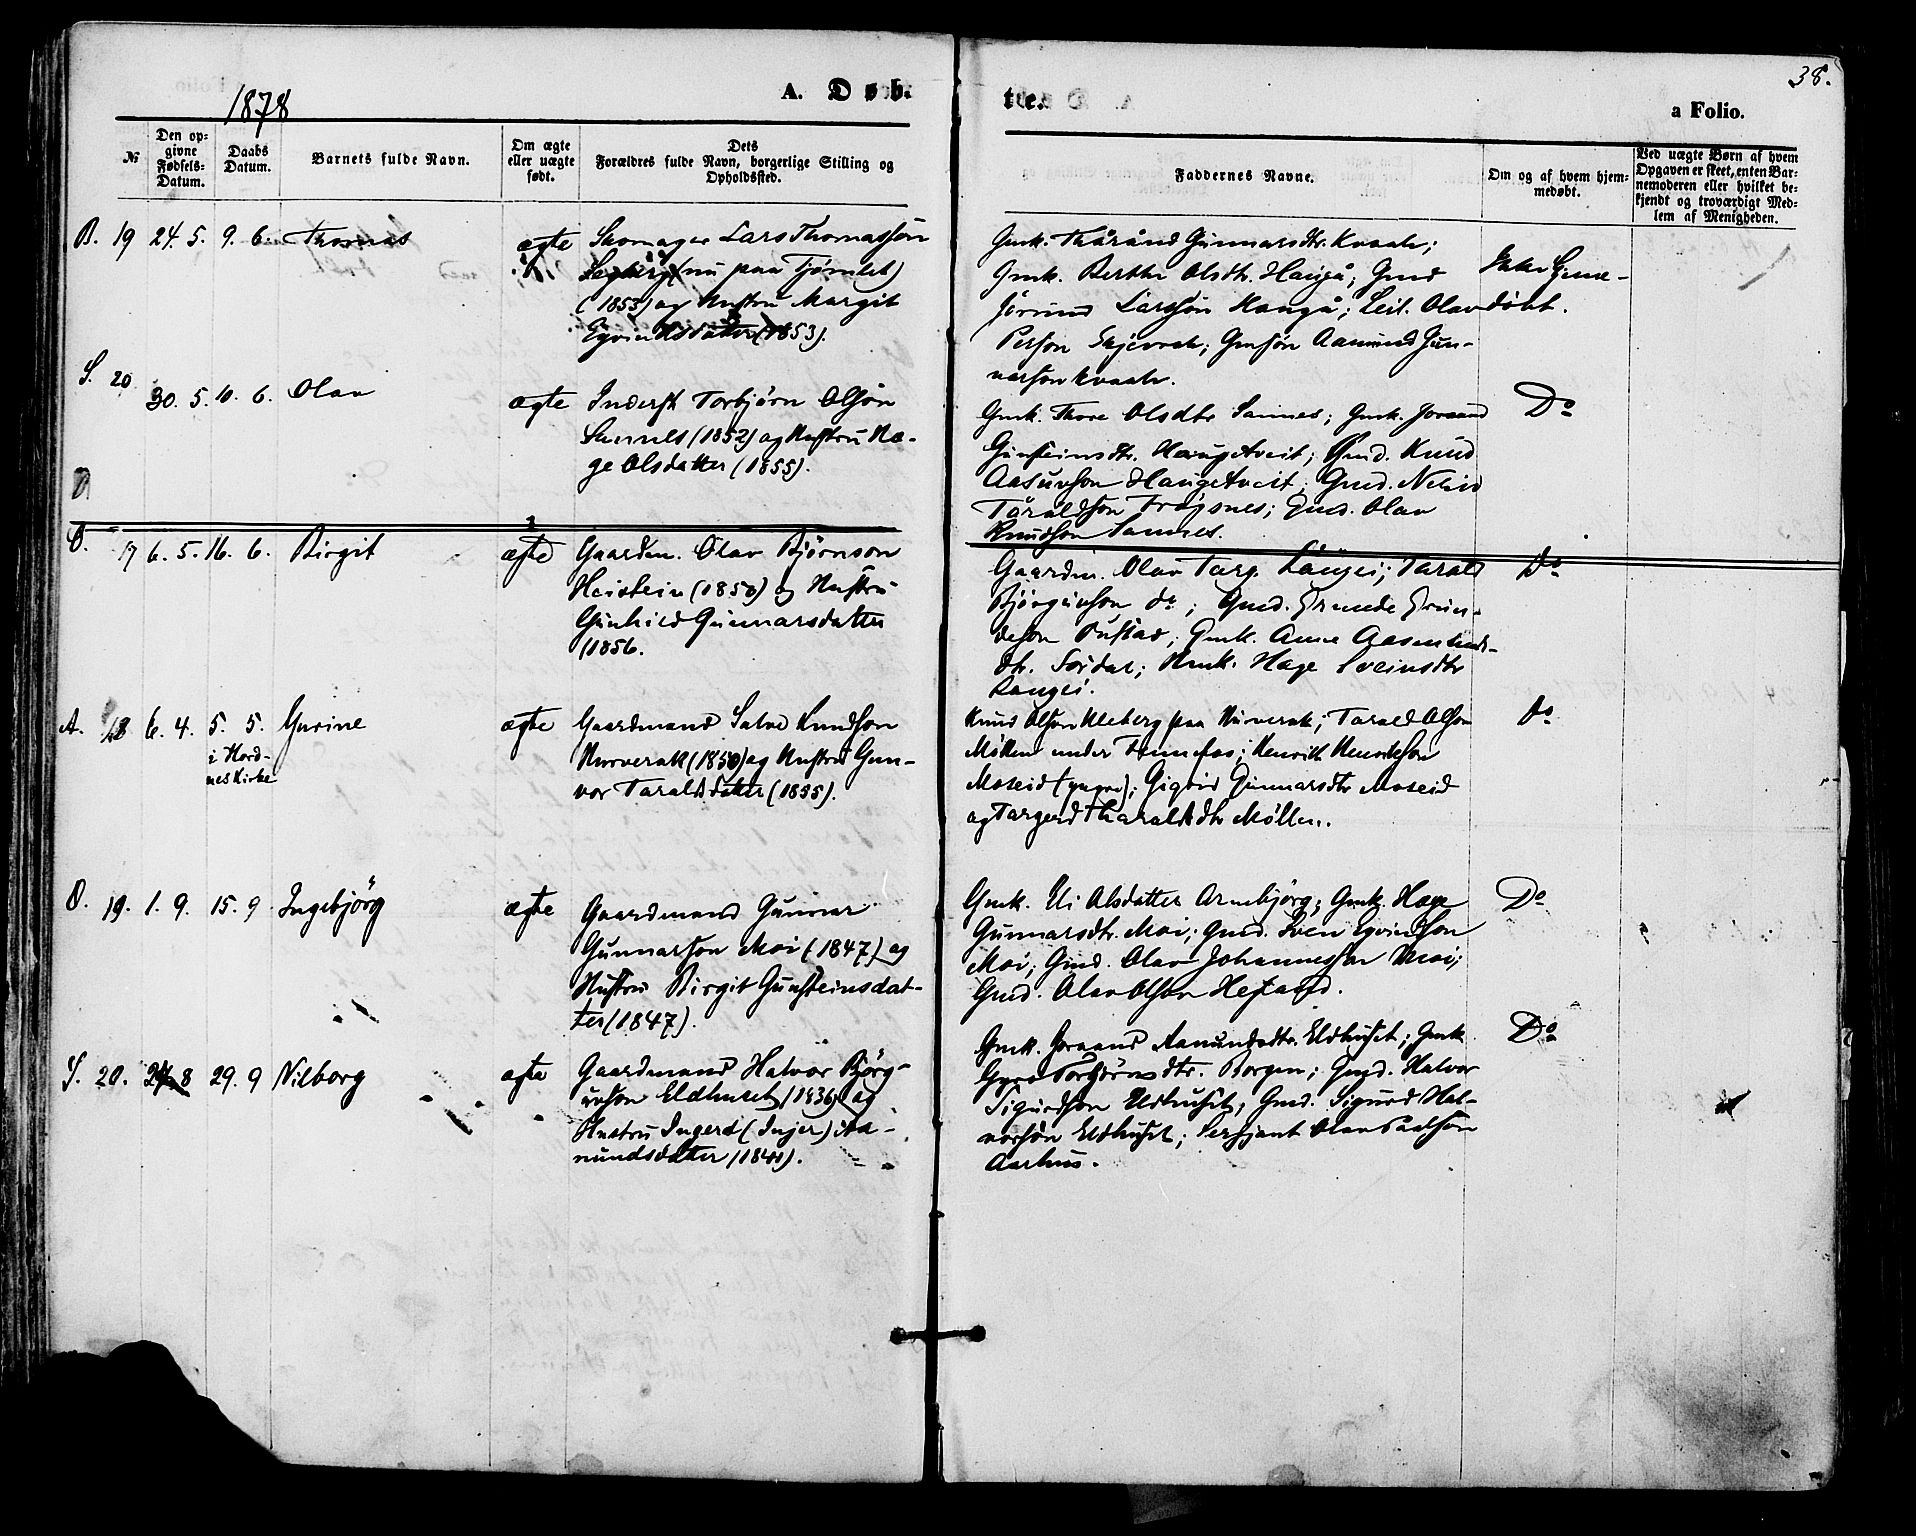 1878
A. Døb-
te.
38.
a Folio.
№
Den op-
givne
Fødsels-
Datum.
Daabs
Datum.
Barnets fulde Navn.
Om ægte
eller uægte
født.
Dets
Forældres fulde Navn, borgerlige Stilling og
Opholdssted.
Faddernes Navne.
Om og af hvem hjem-
medøbt.
Ved uægte Børn af hvem
Opgaven er skeet, enten Bar-
nemoderen eller hvilket be-
kjendt og troværdigt Med-
lem af Menigheden.
B. 19 24. 5. 9. 6. Thomas ægte
Skomager Lars Thomassøn
(nu paa Tjømlet)
(1853) og Hustru Margit
Eyvindsdatter (1853).
Gmk. Thårånd Gunnarsdtr. Kvaale;
Gmk. Berthe Olsdtr. Haugå; Gmd
Jörund Larssøn Haugå; Leil. Olav
Person; Gmsøn Aanund Gun-
narson Kvaale.
Ikke hjemme-
döbt.
S. 20 30. 5. 10. 6. Olav ægte
Inderst Torbjørn Olsøn
Sannes (1852) og Hustru Hæ-
ge Olsdatter (1855).
Gmk. Thore Olsdtr Sannes; Gmk. Joraand
Gunsteinsdtr. Haugetveit; Gmd. Knud
Aasuvson Haugetveit; Gmd.
Taraldson Frøysnes; Gmd. Olav
Knudson Sannes.
Do
O. 17 6. 5. 16. 6. Birgit ægte
Gaardm. Olav Bjørnson
Heistein (1850) og Hustru
Gunhild Gunnarsdatter
(1856.
Gaardm. Olav Targ. Langei; Tarald
Bjørguvson do; Gmd. Grunde Grun-
deson Rustad; Gmk. Anne Aasmunds-
dtr. Sordal; Gmk. Hæge Sveinsdtr
Langei.
Do
A. 18 6. 4. 5. 5. Gurine ægte
i Hord-
nes Kirke
Gaardmand Salve Knudson
Hurverak (1850) og Hustru Gun-
vor Taraldsdatter (1855).
Knud Olson Uleberg paa Hurverak; Tarald Olson
Møllen under Fennefos; Henrik Henrikson
Moseid (yngre); Sigrid Gunnarsdtr Moseid
og Targerd Tharaldsdtr Møllen.
do
O. 19. 1. 9. 15. 9 Ingebjörg ægte
Gaardmand Gunnar
Gunnarson Moi (1847) og
Hustru Birgit Gunsteinsdat-
ter (1847).
Gmk. Olsdatter Arnebjörg; Gmk. Hæge
Gunnarsdtr. Moi; Gmd. Sven Eyvindson
Moi; Gmd. Olav Johannesson Moi;
Gmd. Olav Olson Hegland.
Do
S. 20. 24. 8 29. 9 Nilborg ægte
Gaardmand Halvor Björg-
uvson Eldhuset (1836) og
Hustru Ingerd (Injer) Aa-
nundsdatter (1841).
Gmk. Joraand Aanundsdtr. Eldhuset; Gmk
Gyro Torbjörnsdtr. Borgen; Gmd. Halvor
Sigurdson Eldhuset; Gmd. Sigurd Hal-
vorsøn Eldhuset; Serjeant Olav Paalson
Aarhus.
Do